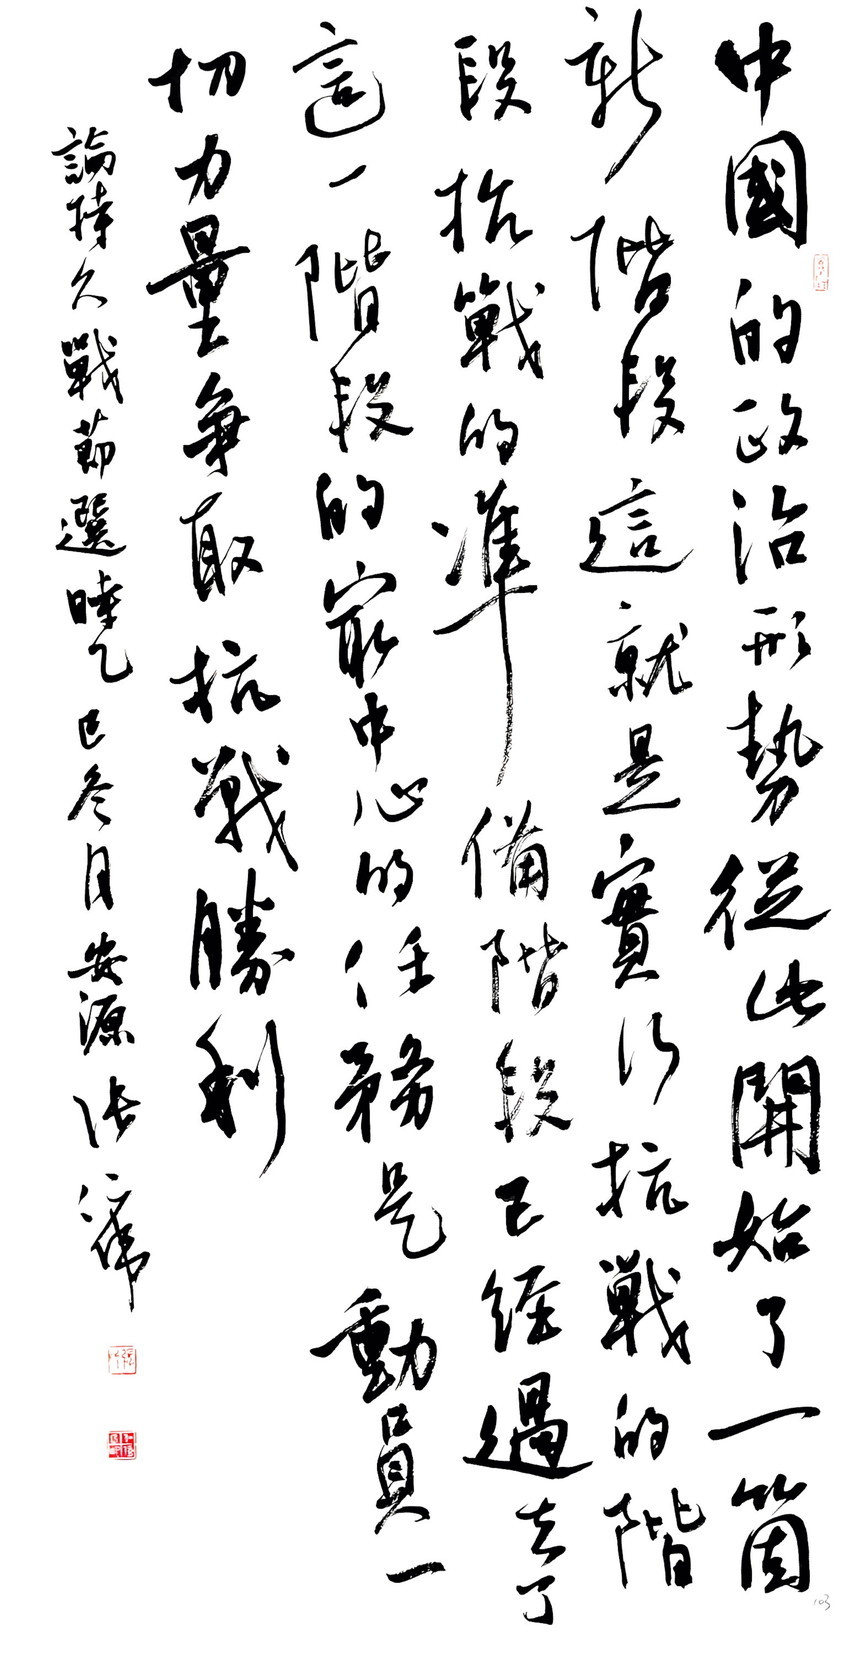 中國的政治形勢從此開始了一箇
新階段這就是實行抗戰的階
段抗戰的準備階段已經過去了
這一階段的最中心的任務是動員一
切力量爭取抗戰勝利
論持久戰節選時乙巳冬月安源張偉
103